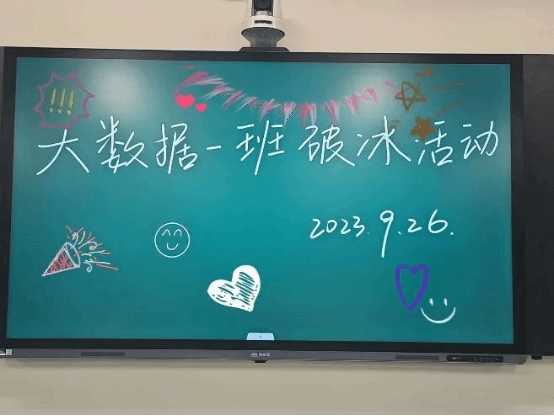 !!!
大数据一班破冰活动
2023.9.26.